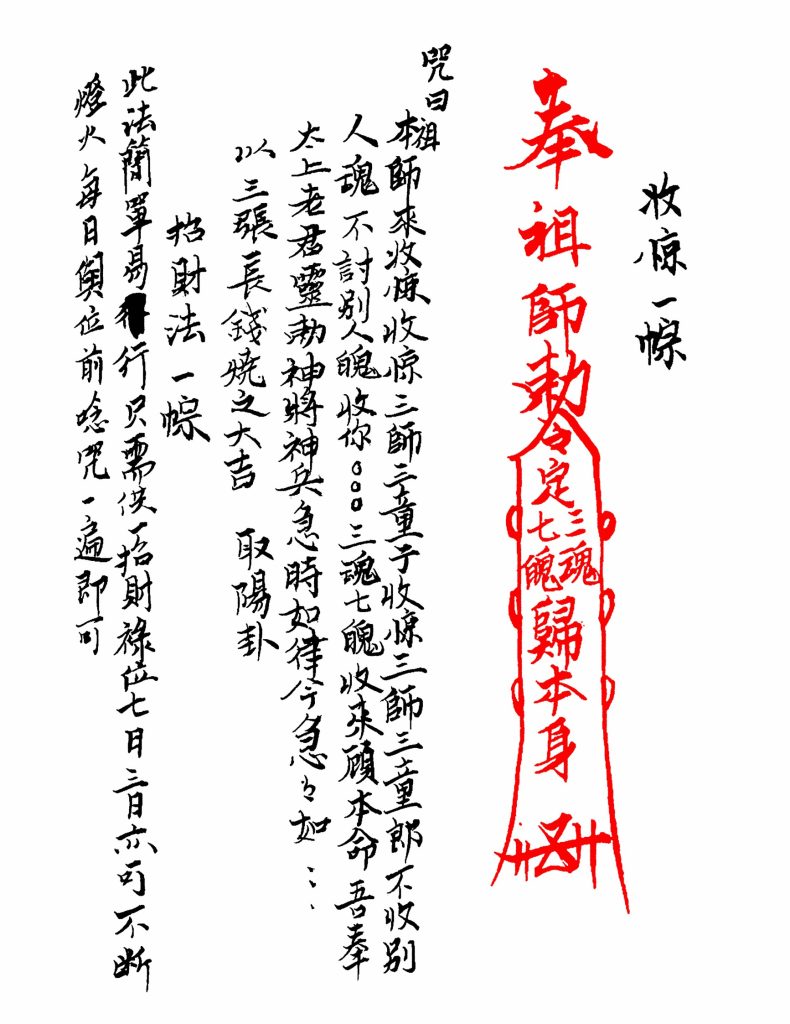 收惊一幖
奉祖師勅令定三魂七魄歸本身
咒曰
本祖師來收惊收惊三師三童子收惊三師三童郎不收別
人魂不討別人魄收你○○○三魂七魄收來顧本命吾奉
太上老君靈勅神將神兵急時如律令急々如::
以三張長錢燒之大吉 取陽卦
招財法一幖
此法簡單易行只需供一招財祿位七日三日亦可不斷
燈火每日與位前唸咒一遍即可